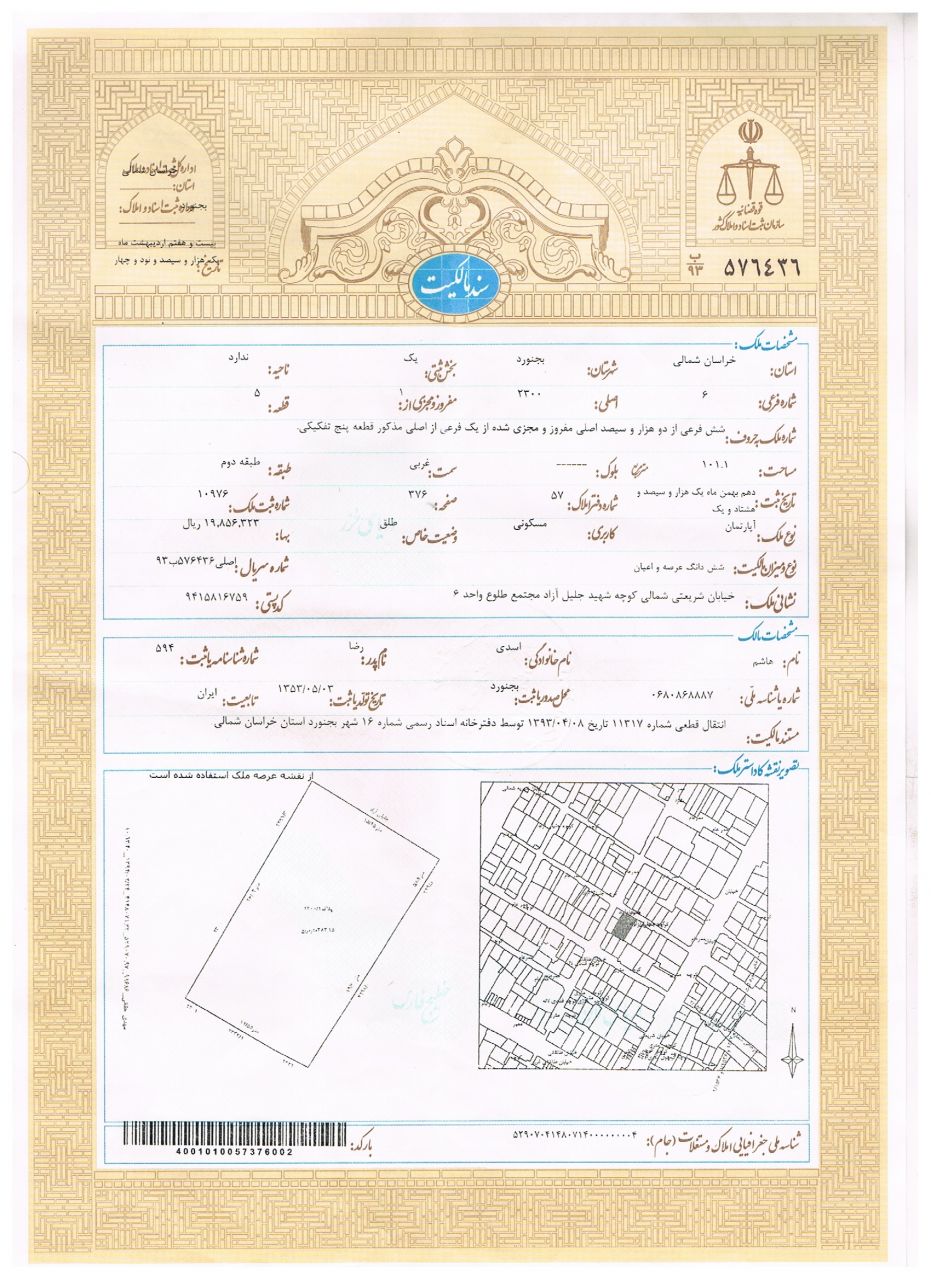 اداره کل ثبت اسناد و املاک
استان: خراسان شمالی
اداره ثبت اسناد و املاک: بجنورد
بیست و هفتم اردیبهشت ماه
تاریخ: یکهزار و سیصد و نود و چهار
قوه قضائیه
سازمان ثبت اسناد و املاک کشور
۵۷۶۴۳۶ ب ۹۳
سند مالکیت
مشخصات ملک:
استان: خراسان شمالی شهرستان: بجنورد بخش ثبتی: یک ناحیه: ندارد
شماره فرعی: ۶ اصلی: ۲۳۰۰ مفروز و مجزی از: ۱ قطعه: ۵
شماره ملک به حروف: شش فرعی از دو هزار و سیصد اصلی مفروز و مجزی شده از یک فرعی از اصلی مذکور قطعه پنج تفکیکی.
مساحت: ۱۰۱.۱ متر مربع بلوک: ------ سمت: غربی طبقه: طبقه دوم
تاریخ ثبت: دهم بهمن ماه یک هزار و سیصد و هشتاد و یک شماره دفتر املاک: ۵۷ صفحه: ۳۷۶ شماره ثبت ملک: ۱۰۹۷۶
نوع ملک: آپارتمان کاربری: مسکونی وضعیت خاص: طلق بهاء: ۱۹,۸۵۶,۳۲۳ ریال
نوع و میزان مالکیت: شش دانگ عرصه و اعیان شماره سریال: اصلی ۵۷۶۴۳۶ب۹۳
نشانی ملک: خیابان شریعتی شمالی کوچه شهید جلیل آزاد مجتمع طلوع واحد ۶ کد پستی: ۹۴۱۵۸۱۶۷۵۹
مشخصات مالک
نام: هاشم نام خانوادگی: اسدی نام پدر: رضا شماره شناسنامه یا ثبت: ۵۹۴
شماره یا شناسه ملی: ۰۶۸۰۸۶۸۸۸۷ محل صدور یا ثبت: بجنورد تاریخ تولد یا ثبت: ۱۳۵۳/۰۵/۰۳ تابعیت: ایران
مستند مالکیت: انتقال قطعی شماره ۱۱۳۱۷ تاریخ ۱۳۹۳/۰۴/۰۸ توسط دفترخانه اسناد رسمی شماره ۱۶ شهر بجنورد استان خراسان شمالی
تصویر نقشه کاداستر ملک:
از نقشه عرصه ملک استفاده شده است
N
شناسه ملی جغرافیایی املاک و مستغلات (جام): ۵۲۹۰۷۰۴۱۴۸۰۷۱۴۰۰۰۰۰۰۰۰۴
بارکد:
4001010057376002